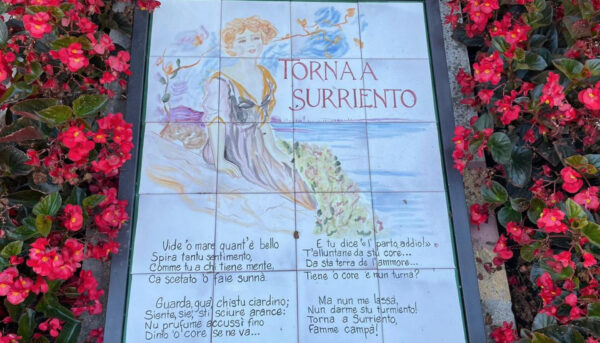 TORNA A
SURRIENTO
Vide 'o mare quant'è bello
Spira tantu sentimento,
Comme tu a chi tiene mente,
Ca scetato 'o faie sunnà.
Guarda, qua, chistu ciardino;
Siente, sie', sti sciure arance:
Nu prufumo accussì fino
Dinto 'o core se ne va...
E tu dice «I' parto, addio!»
T'alluntane da stu core...
Da sta terra de l'ammore...
Tiene 'o core 'e nun turnà?
Ma nun me lassà,
Nun darme stu turmiento!
Torna a Surriento,
Famme campà!